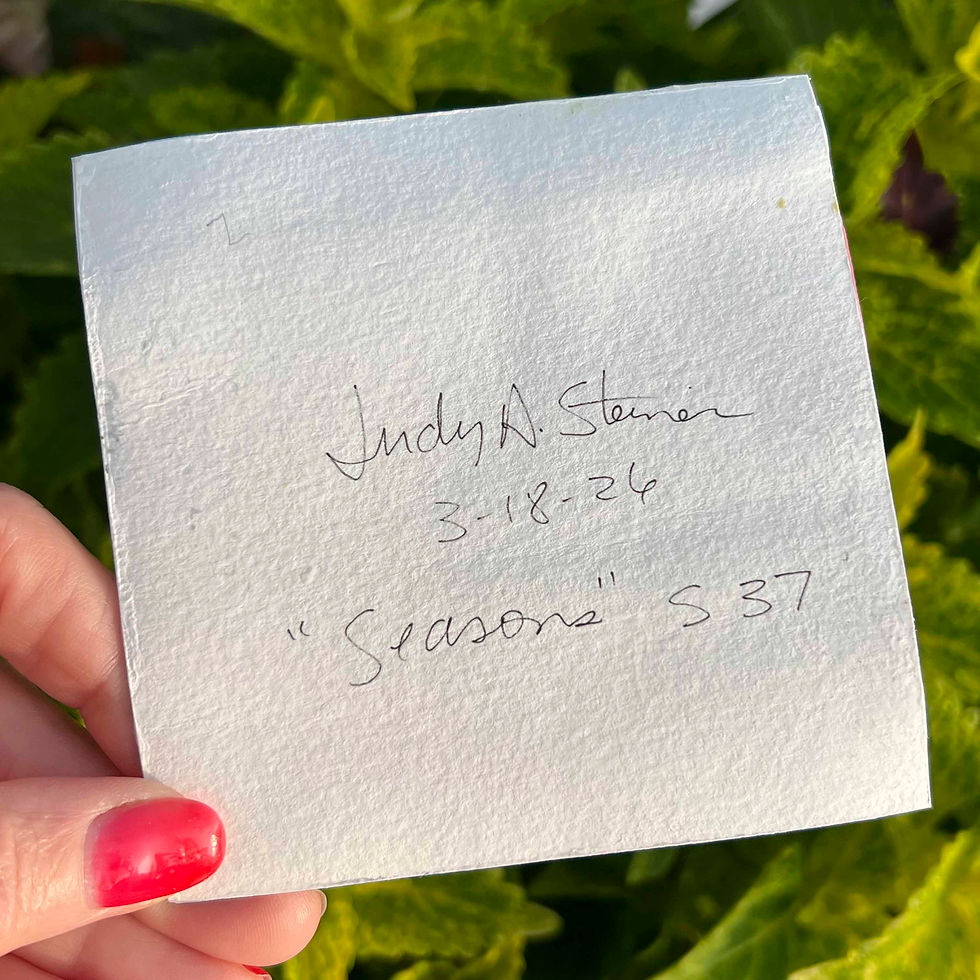 2
Judy A. Steiner
3-18-26
"Seasons" S 37